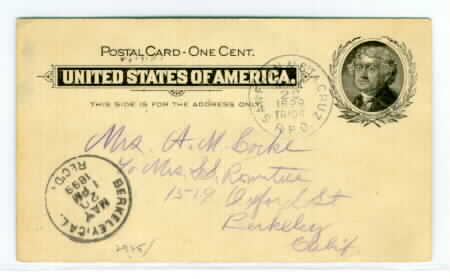 POSTAL CARD - ONE CENT.
UNITED STATES OF AMERICA.
THIS SIDE IS FOR THE ADDRESS ONLY.
SAN FRAN. & STA CRUZ
1899
R.P.O.
Mrs. A. M. Cooke
Mrs. S. S. Rowntree
1519 Oxford St
Berkeley
Calif.
BERKELEY, CAL.
MAY
1 PM
1899
REC'D.